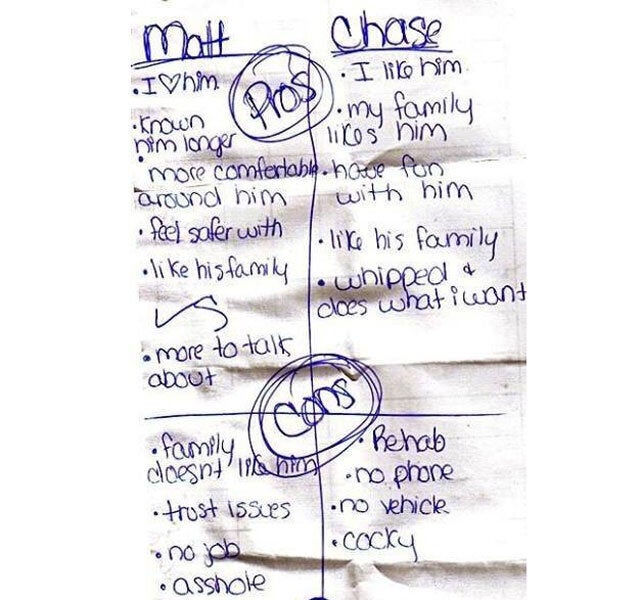 Matt
Pros
• I ♡ him
• known
him longer
• more comfertable
around him
• feel safer with
• like his family
• more to talk
about
Chase
• I like him
• my family
likes him
• have fun
with him
• like his family
• whipped &
does what i want
Cons
• family
doesnt like him
• trust issues
• no job
• asshole
• Rehab
• no phone
• no vehicle
• cocky